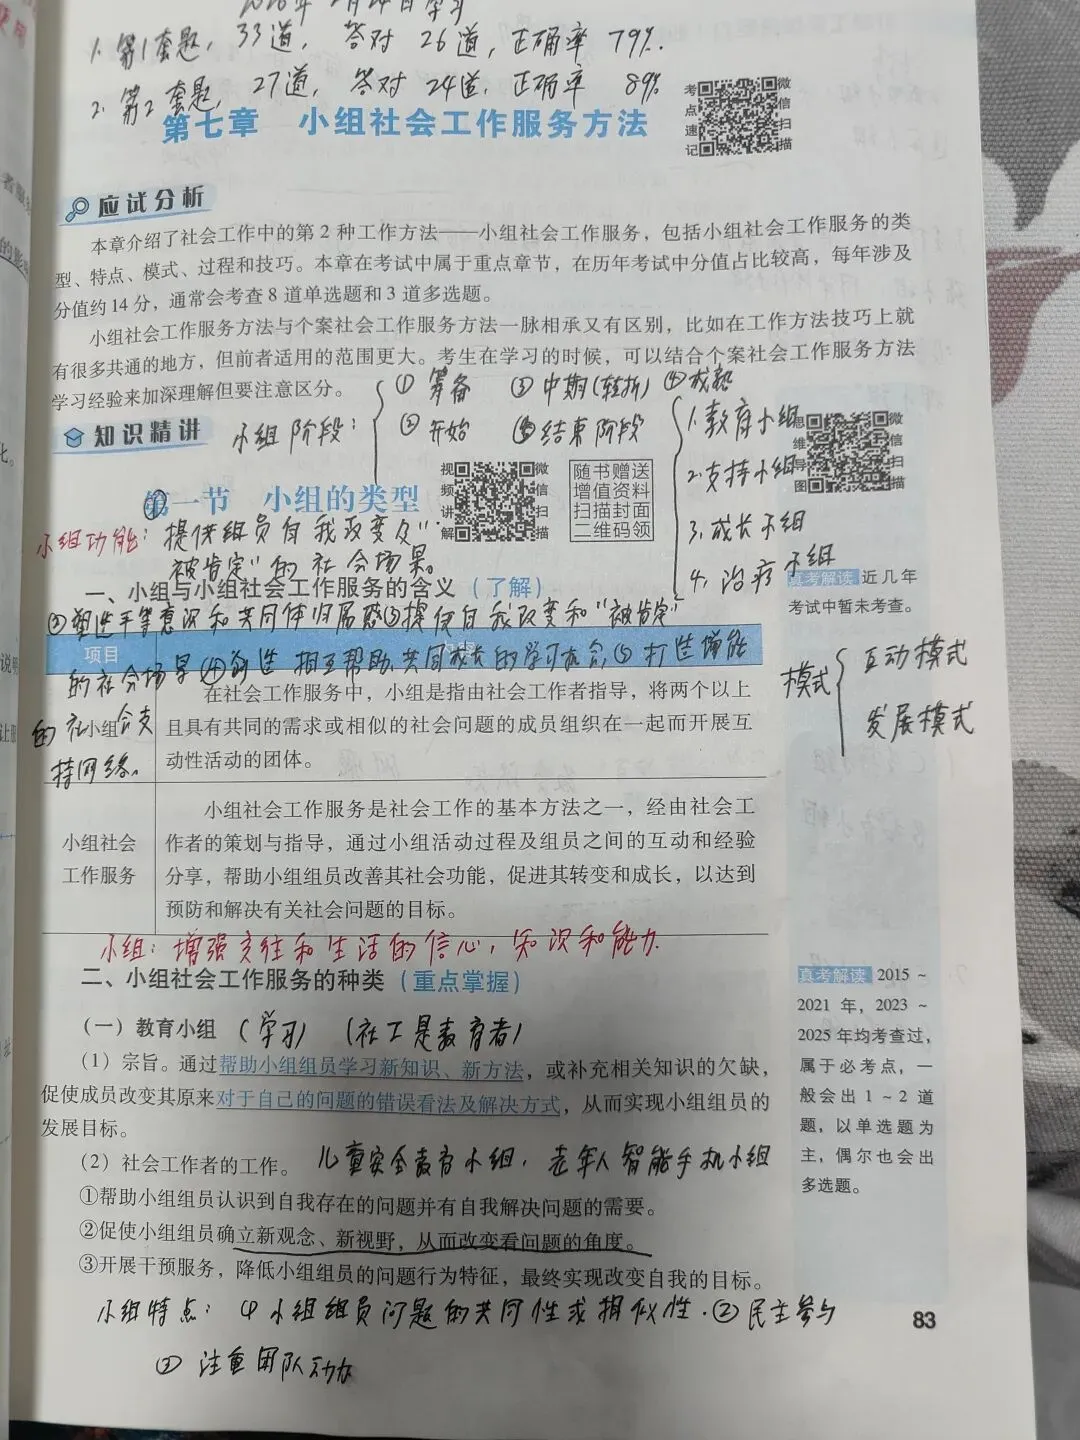 1. 第1套题，33道，答对 26道，正确率 79%.
2. 第2套题，27道，答对 24道，正确率 89%
第七章 小组社会工作服务方法
考点速记
微信扫描
应试分析
本章介绍了社会工作中的第 2 种工作方法——小组社会工作服务，包括小组社会工作服务的类
型、特点、模式、过程和技巧。本章在考试中属于重点章节，在历年考试中分值占比较高，每年涉及
分值约 14 分，通常会考查 8 道单选题和 3 道多选题。
小组社会工作服务方法与个案社会工作服务方法一脉相承又有区别，比如在工作方法技巧上就
有很多共通的地方，但前者适用的范围更大。考生在学习的时候，可以结合个案社会工作服务方法
学习经验来加深理解但要注意区分。
① 筹备 ③ 中期(转折) ④ 成熟
知识精讲
小组阶段：
② 开始 ⑤ 结束阶段
1.教育小组
2.支持小组
3.成长小组
4.治疗小组
思维导图
微信扫描
视频讲解
微信扫描
随书赠送
增值资料
扫描封面
二维码领
第一节 小组的类型
小组功能：提供组员自我改变及“
被肯定”的社会场景。
一、小组与小组社会工作服务的含义（了解）
真考解读 近几年
考试中暂未考查。
②塑造平等意识和共同体归属感③提供自我改变和“被肯定”
的社会场景④创造 相互帮助、共同成长的学习机会⑤打造增能
的社会支
持网络。
项目
模式
互动模式
发展模式
小组
在社会工作服务中，小组是指由社会工作者指导，将两个以上
且具有共同的需求或相似的社会问题的成员组织在一起而开展互
动性活动的团体。
小组社会
工作服务
小组社会工作服务是社会工作的基本方法之一，经由社会工
作者的策划与指导，通过小组活动过程及组员之间的互动和经验
分享，帮助小组组员改善其社会功能，促进其转变和成长，以达到
预防和解决有关社会问题的目标。
小组：增强交往和生活的信心，知识和能力.
二、小组社会工作服务的种类（重点掌握）
真考解读 2015～
2021 年，2023～
2025 年均考查过，
属于必考点，一
般会出 1～2 道
题，以单选题为
主，偶尔也会出
多选题。
（一）教育小组 （学习） （社工是教育者）
（1）宗旨。通过帮助小组组员学习新知识、新方法，或补充相关知识的欠缺，
促使成员改变其原来对于自己的问题的错误看法及解决方式，从而实现小组组员的
发展目标。
（2）社会工作者的工作。 儿童安全教育小组，老年人智能手机小组
①帮助小组组员认识到自我存在的问题并有自我解决问题的需要。
②促使小组组员确立新观念、新视野，从而改变看问题的角度。
③开展干预服务，降低小组组员的问题行为特征，最终实现改变自我的目标。
小组特点：① 小组组员问题的共同性或相似性.② 民主参与
③ 注重团队动力
83